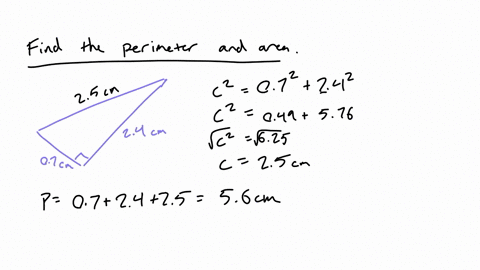 Find the perimeter and area.
2.5 cm
2.4 cm
0.7 cm
c² = 0.7² + 2.4²
c² = 0.49 + 5.76
√c² = √6.25
c = 2.5 cm
P = 0.7 + 2.4 + 2.5 = 5.6 cm